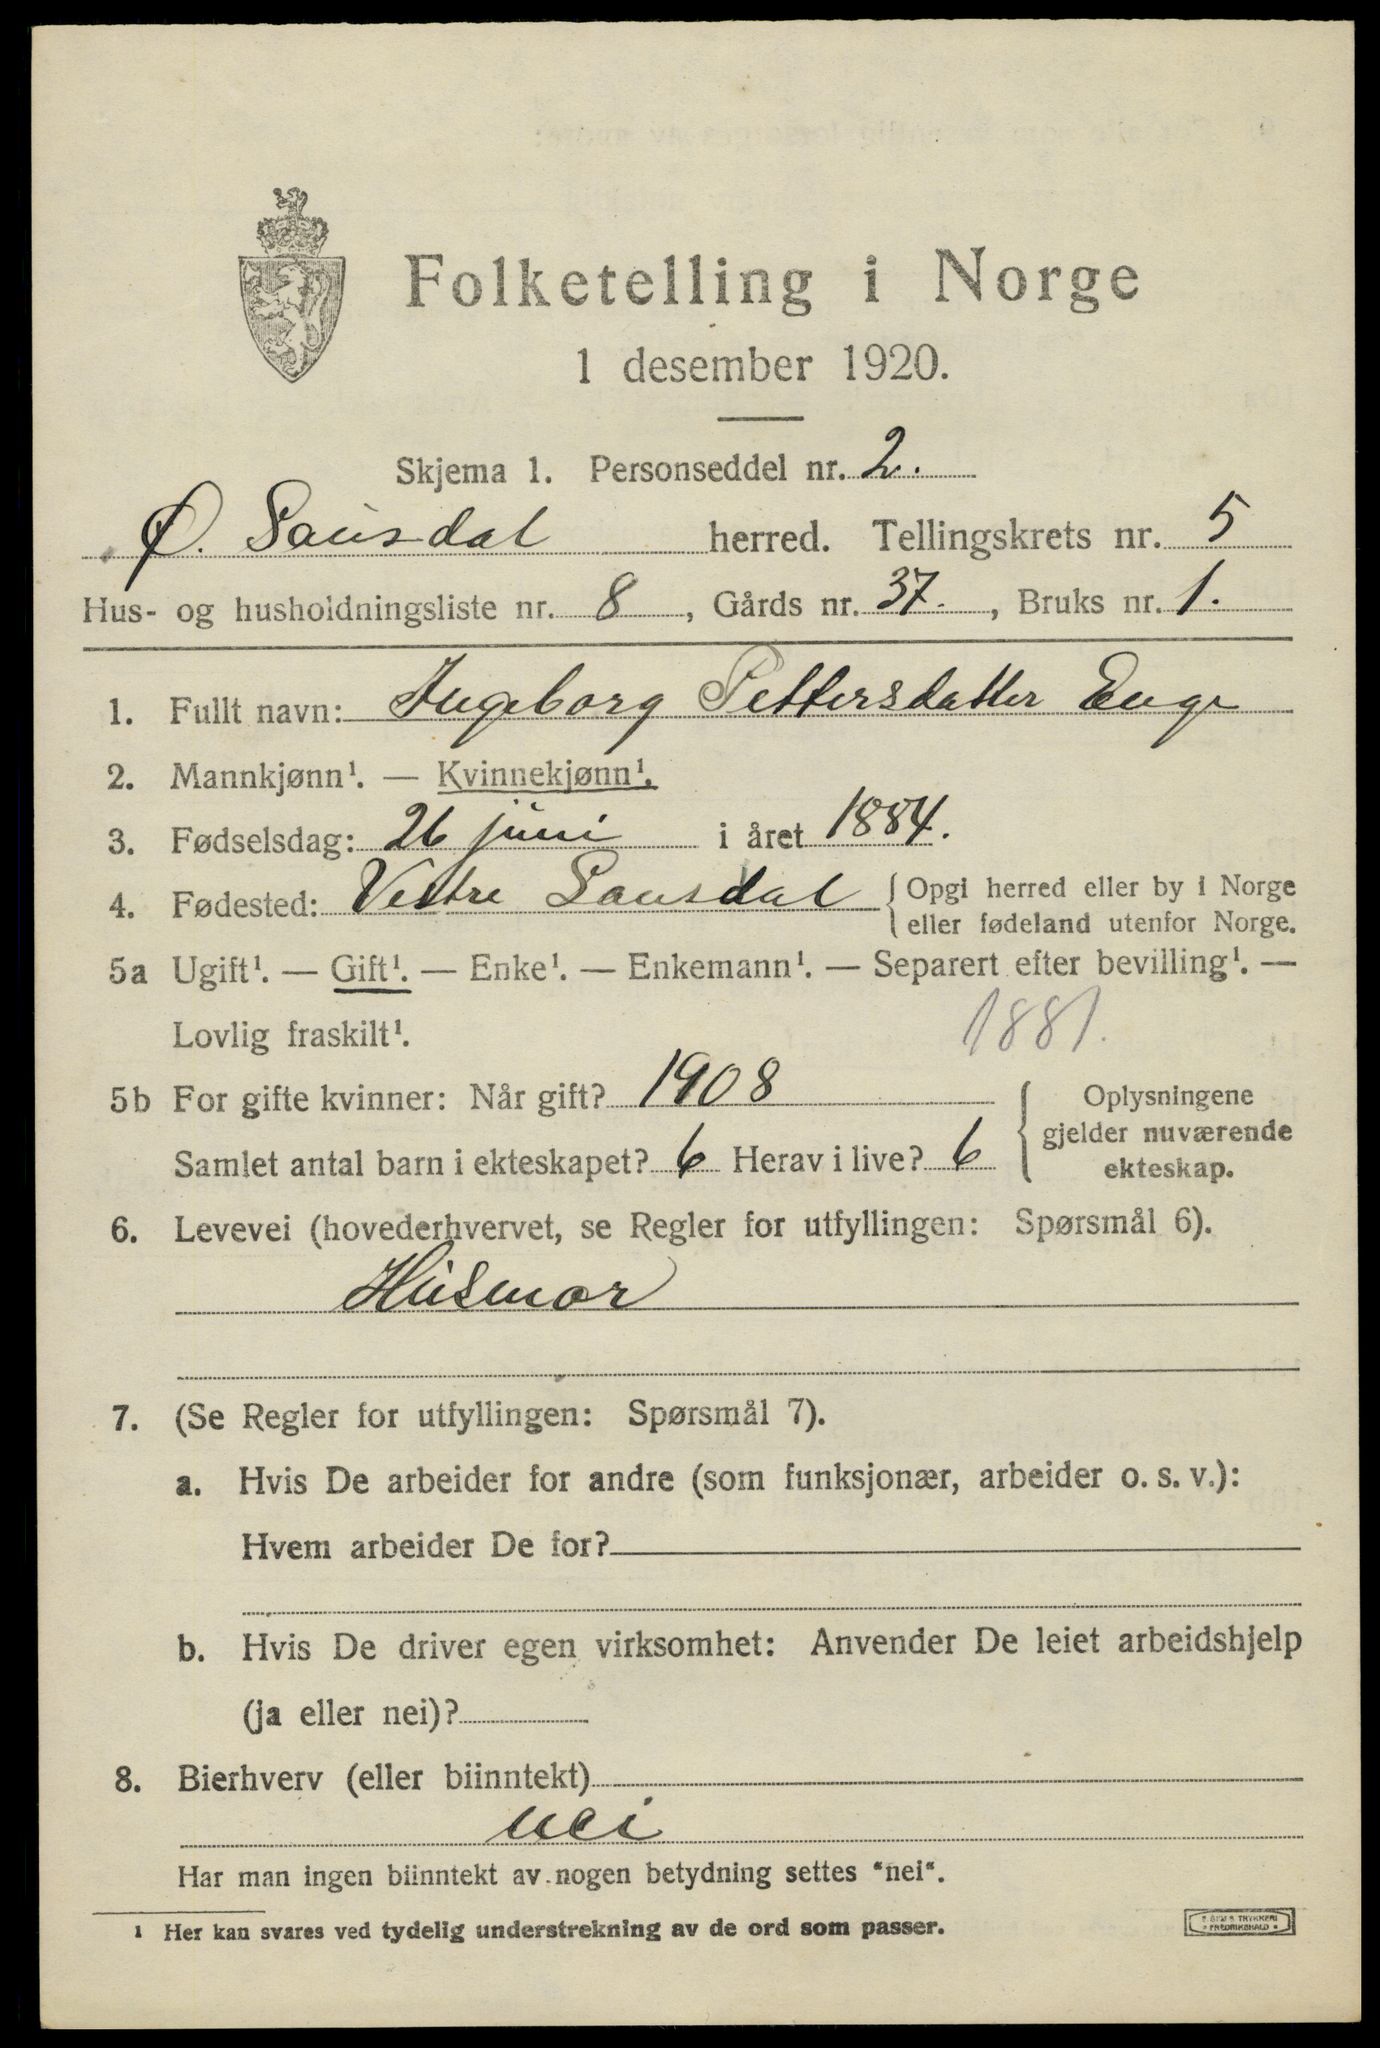 Folketelling i Norge
1 desember 1920.
Skjema 1. Personseddel nr. 2.
Ø. Sausdal herred. Tellingskrets nr. 5
Hus- og husholdningsliste nr. 8, Gårds nr. 37., Bruks nr. 1.
1. Fullt navn: Ingeborg Pettersdatter Enge
2. Mannkjønn¹. — Kvinnekjønn¹.
3. Fødselsdag: 26 juni i året 1884.
4. Fødested: Vestre Sausdal {Opgi herred eller by i Norge
eller fødeland utenfor Norge.
5a Ugift¹. — Gift¹. — Enke¹. — Enkemann¹. — Separert efter bevilling¹. —
Lovlig fraskilt¹. 1881.
5b For gifte kvinner: Når gift? 1908
Samlet antal barn i ekteskapet? 6 Herav i live? 6
Oplysningene
gjelder nuværende
ekteskap.
6. Levevei (hovederhvervet, se Regler for utfyllingen: Spørsmål 6).
Husmor
7. (Se Regler for utfyllingen: Spørsmål 7).
a. Hvis De arbeider for andre (som funksjonær, arbeider o. s. v.):
Hvem arbeider De for?
b. Hvis De driver egen virksomhet: Anvender De leiet arbeidshjelp
(ja eller nei)?
8. Bierhverv (eller biinntekt)
nei
Har man ingen biinntekt av nogen betydning settes "nei".
1 Her kan svares ved tydelig understrekning av de ord som passer.
TRYKKERI
FREDRIKSHALD